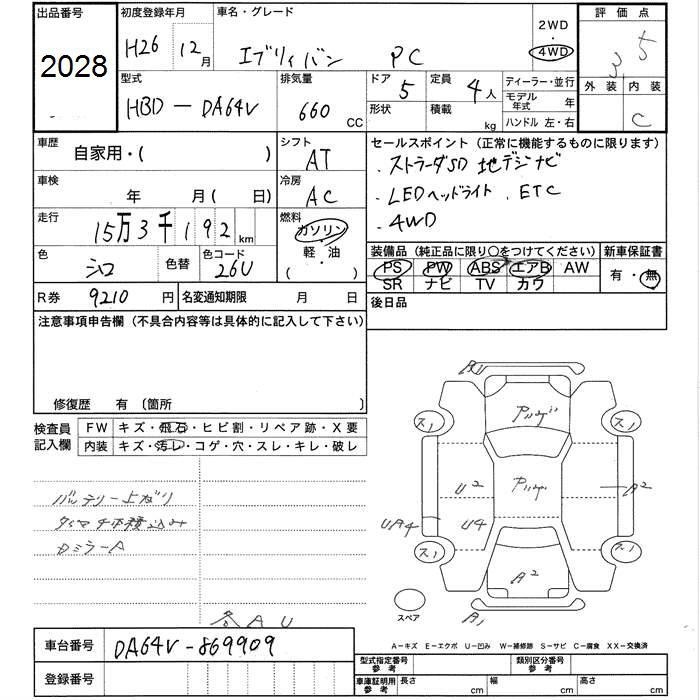 出品番号 初度登録年月 車名・グレード 2WD・4WD 評価点
2028 H26 12月 エブリイバン PC 3.5
型式 排気量 ドア 定員 ディーラー・並行 外装 内装
HBD-DA64V 660 CC 5 4人 モデル年式 年 C
形状 積載 kg ハンドル 左・右
車歴 自家用・( ) シフト AT
セールスポイント (正常に機能するものに限ります)
・ストラーダSD 地デジナビ
・LEDヘッドライト . ETC
・4WD
車検 年 月( 日) 冷房 AC
走行 15万3千192km 燃料 ガソリン・軽・油 ( )
色 シロ 色替 色コード 26U
装備品 (純正品に限り○をつけてください) 新車保証書
PS PW ABS エアB AW 有・無
SR ナビ TV カワ
R券 9210円 名変通知期限 月 日 後日品
注意事項申告欄 (不具合内容等は具体的に記入して下さい)
修復歴 有 〔箇所 〕
検査員記入欄 FW キズ・飛石・ヒビ割・リペア跡・X要
内装 キズ・汚レ・コゲ・穴・スレ・キレ・破レ
バッテリー上がり
ミラーA
各AU
A1
ス1 ス1
U2 A2
UA4 U4
ス1 ス1
A2
スペア
B1
A-キズ E-エクボ U-凹み W-補修跡 S-サビ C-腐食 XX-交換済
車台番号 DA64V-869909
登録番号
型式指定番号 参考 類別区分番号 参考
車庫証明用 参考 長さ cm 幅 cm 高さ cm